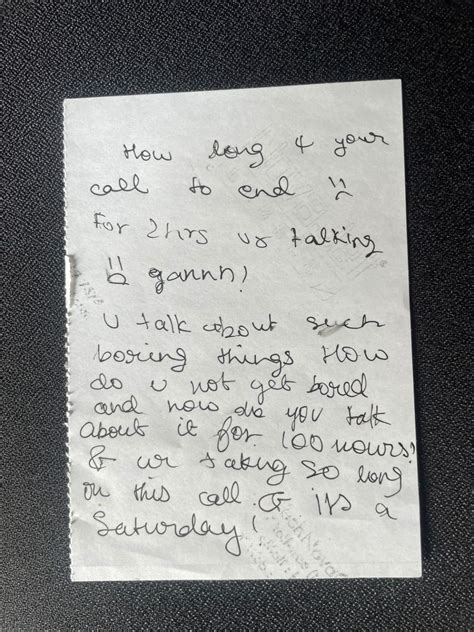 How long 4 your
call to end
For 2hrs ur talking
gannh!
U talk about such
boring things How
do u not get bored
and how do you talk
about it for 100 hours!
& ur taking so long
on this call & its a
Saturday!